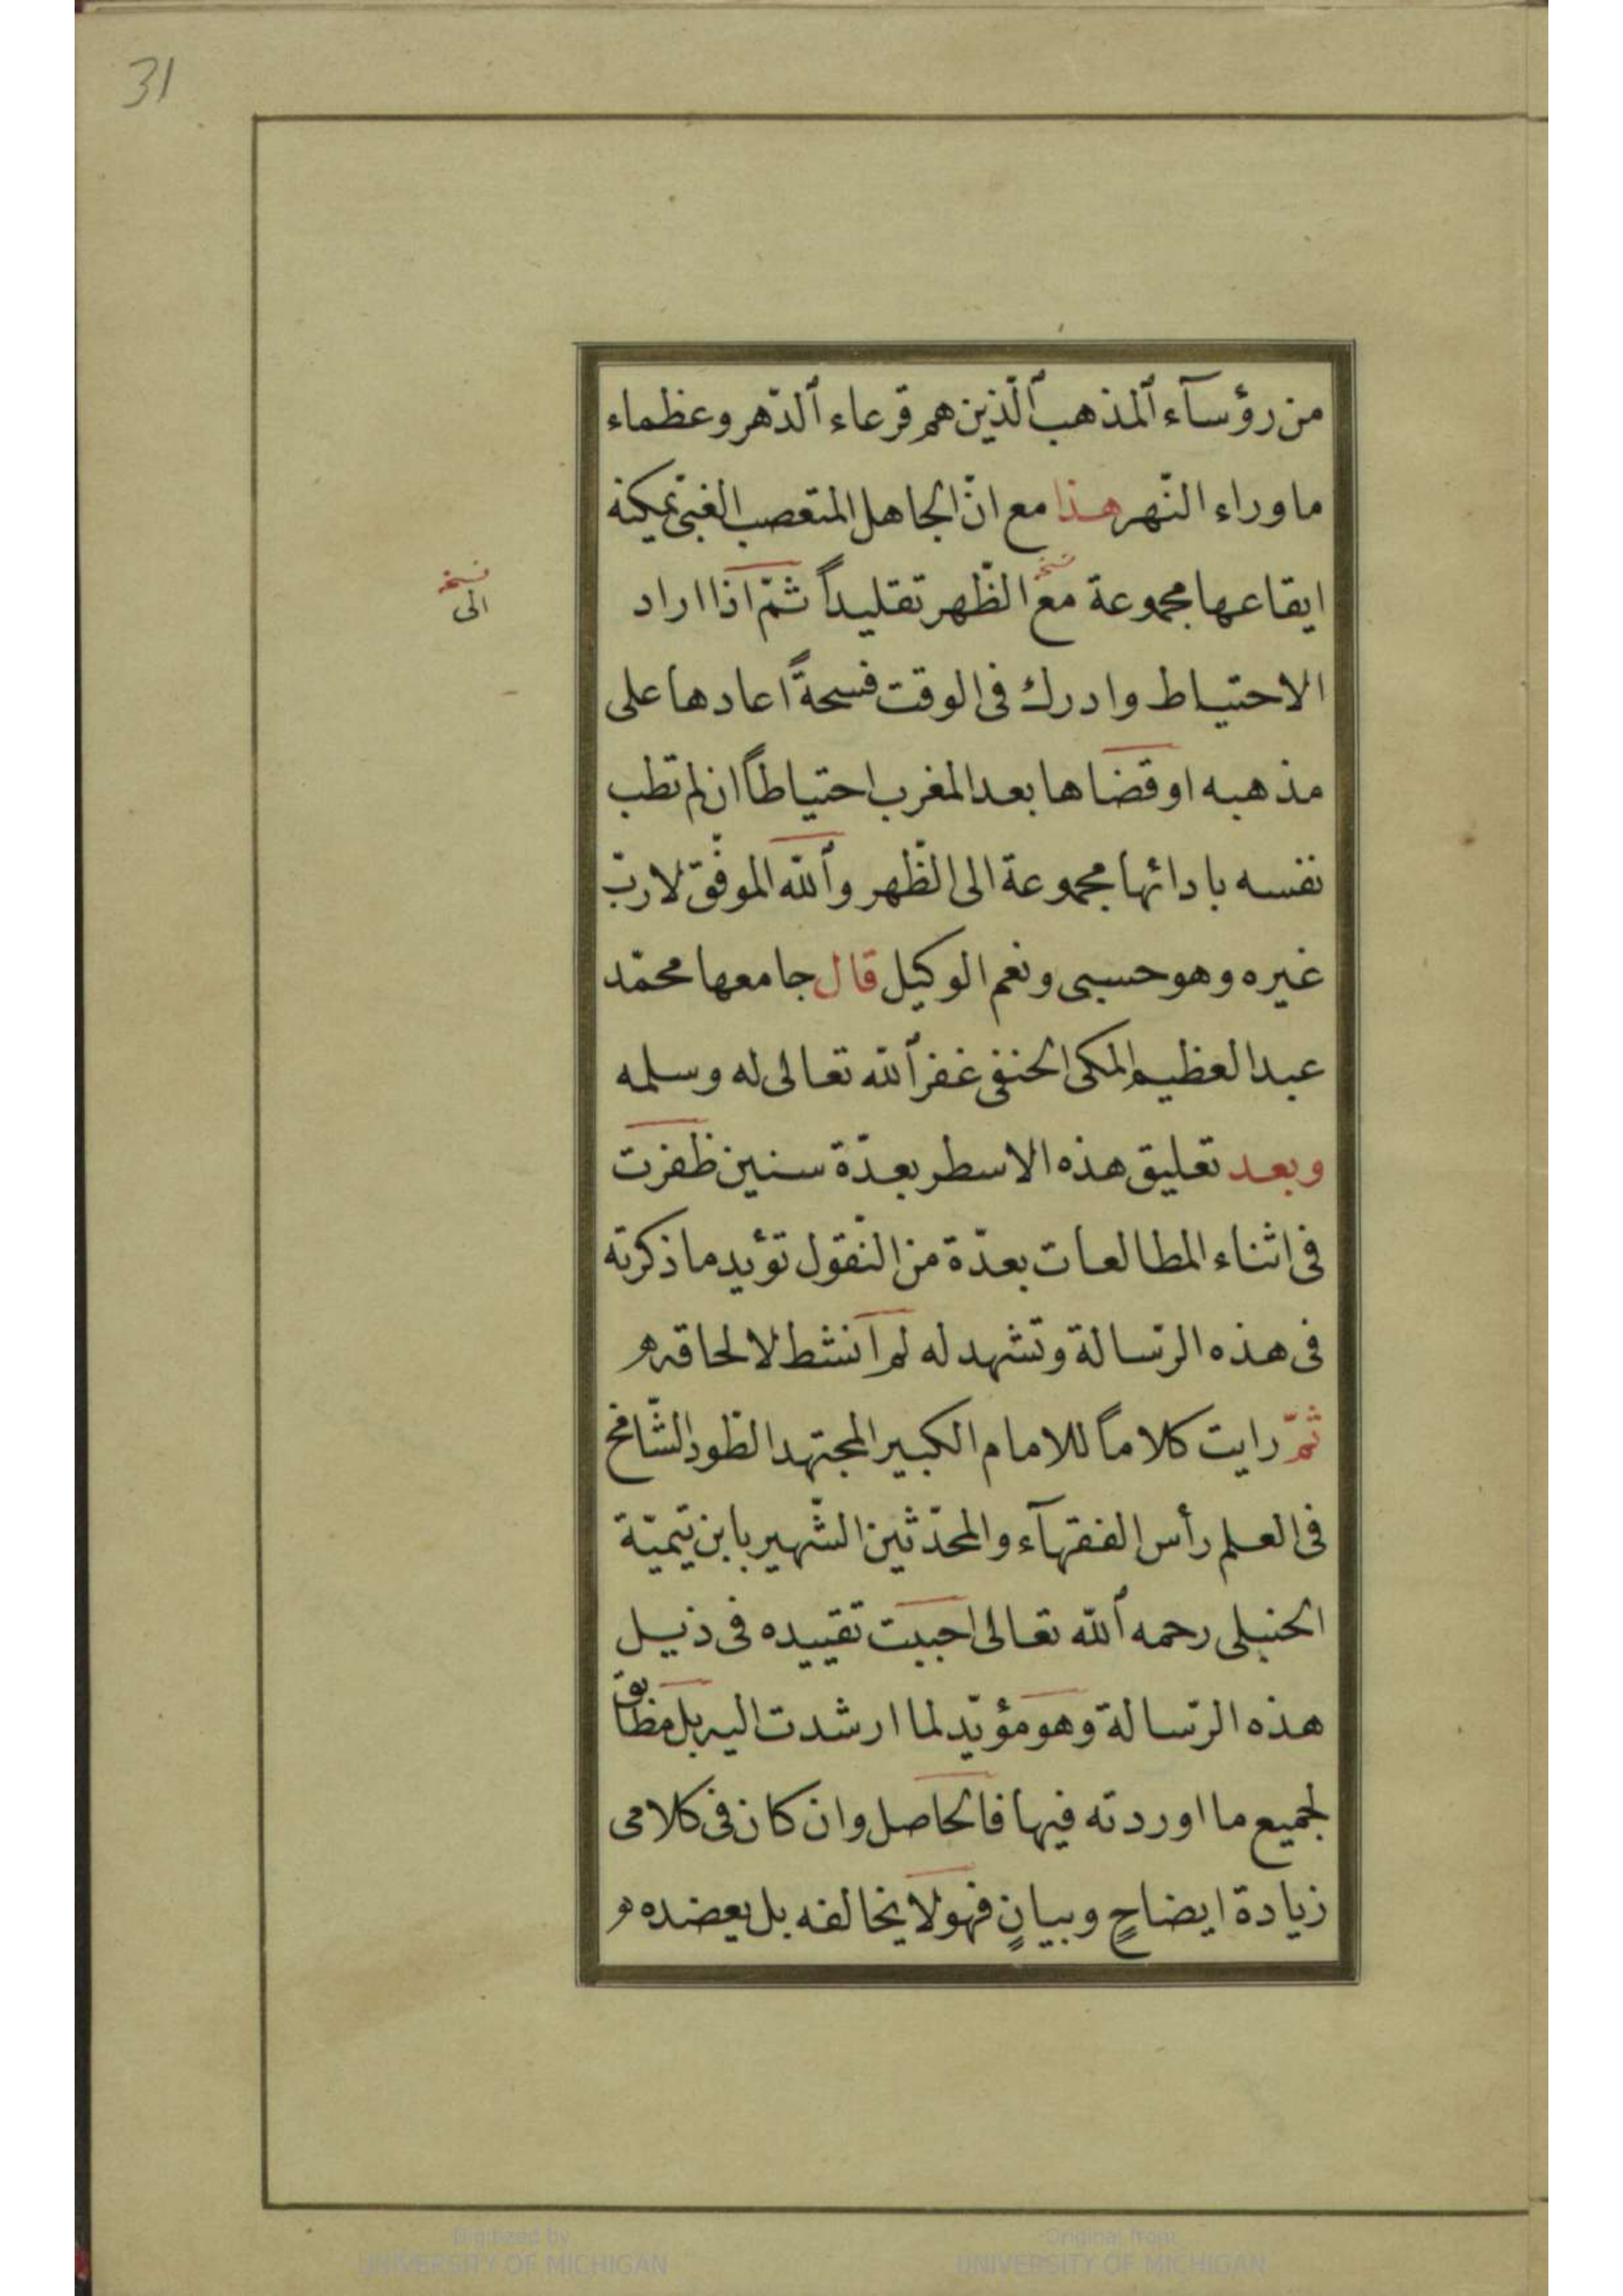 31
من رؤسآء ٱلمذهب ٱلّذين هم قرعاء ٱلدّهر وعظماء
ما وراء النّهر هذا مع انّ الجاهل المتعصب الغبىّ يمكنه
ايقاعها مجموعة مع الظّهر تقليداً ثمّ اذا اراد
نسخه
نسخه
الى
الاحتياط وادرك فى الوقت فسحةً اعادها على
مذهبه او قضاها بعد المغرب احتياطاً ان لم تطب
نفسه بادائها مجموعة الى الظّهر وٱللّه الموفّق لا ربّ
غيره وهو حسبى ونعم الوكيل قال جامعها محمّد
عبد العظيم المكى الحنفى غفر ٱللّه تعالى له وسلمه
وبعد تعليق هذه الاسطر بعدّة سنين ظفرت
فى اثناء المطالعات بعدّة من النّقول تؤيد ما ذكرته
فى هذه الرّسالة وتشهد له لم انشط لالحاقه
ثمّ رايت كلاماً للامام الكبير المجتهد الطّود الشّامخ
فى العلم رأس الفقهآء والمحدّثين الشّهير بابن تيميّة
الحنبلى رحمه ٱللّه تعالى احببت تقييده فى ذيل
هذه الرّسالة وهو مؤيّد لما ارشدت اليه بل مطابق
لجميع ما اوردته فيها فالحاصل وان كان فى كلامى
زيادة ايضاحٍ وبيانٍ فهو لا يخالفه بل يعضده
Digitized by
UNIVERSITY OF MICHIGAN
Original from
UNIVERSITY OF MICHIGAN